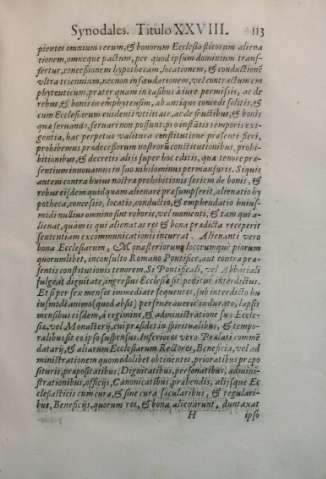 Synodales. Titulo XXVIII. 113
pientes omnium rerum, & bonorum Ecclesiasticorum aliena
tionem, omneque pactum, per quod ipsum dominium trans-
fertur, concessionem hypothecam, locationem, & conductionē
vltra triennium, necnon infeudationem, vel contractum em
phyteuticum, præter quam in casibus à iure permissis, ac de
rebus & bonis in emphyteusim, ab antiquo concedi solitis, &
cum Ecclesiarum euidenti vtilitate, ac de fructibus, & bonis
quæ seruando, seruari non possunt, pro instātis temporis exi-
gentia, hac perpetuo valitura constitutione præsenti fieri,
prohibemus prædecessorum nostrorū constitutionibus, prohi-
bitionibus, & decretis aliis super hoc editis, quæ tenore præ-
sentium innouamus in suo nihilominus permansuris. Si quis
autem contra huius nostræ prohibitionis seriem de bonis, &
rebus eisdem quidquam alienare præsumpserit, alienatio hy
potheca, concessio, locatio, conductio, & infeudatio huius-
modi nullius omnino sint roboris, vel momenti, & tam qui a-
lienat, quam is qui alienatas res & bona prædicta receperit
sententiam excommunicationis incurrat. Alienanti vero
bona Ecclesiarum, Monasteriorum locorumque piorum
quorumlibet, inconsulto Romano Pontifice, aut contra præ-
sentis constitutionis tenorem. Si Pontificali, vel Abbatiali
fulgeat dignitate, ingressus Ecclesiæ sit penitus interdictus.
Et si per sex menses immediate sequentes, sub interdicto hu
iusmodi animo (quod absit) perseuerauerit indurato, lapsis
mensibus eisdem, à regimine, & administratione suæ Eccle-
siæ, vel Monasterij, cui præsidet in spiritualibus, & tempo-
ralibus sit eo ipso suspensus. Inferiores vero Prælati, commē
datarij, & aliarum Ecclesiarum Rectores, Beneficia, vel ad
ministrationem quomodolibet obtinentes, prioratibus præpo
situris, præpositatibus, Dignitatibus, personatibus, admini-
strationibus, officijs, Canonicatibus, præbendis, alijsque Ec
clesiasticis cum cura, & sine cura sæcularibus, & regulari-
bus, Beneficijs, quorum res, & bona alienarunt, duntaxat
H ipso